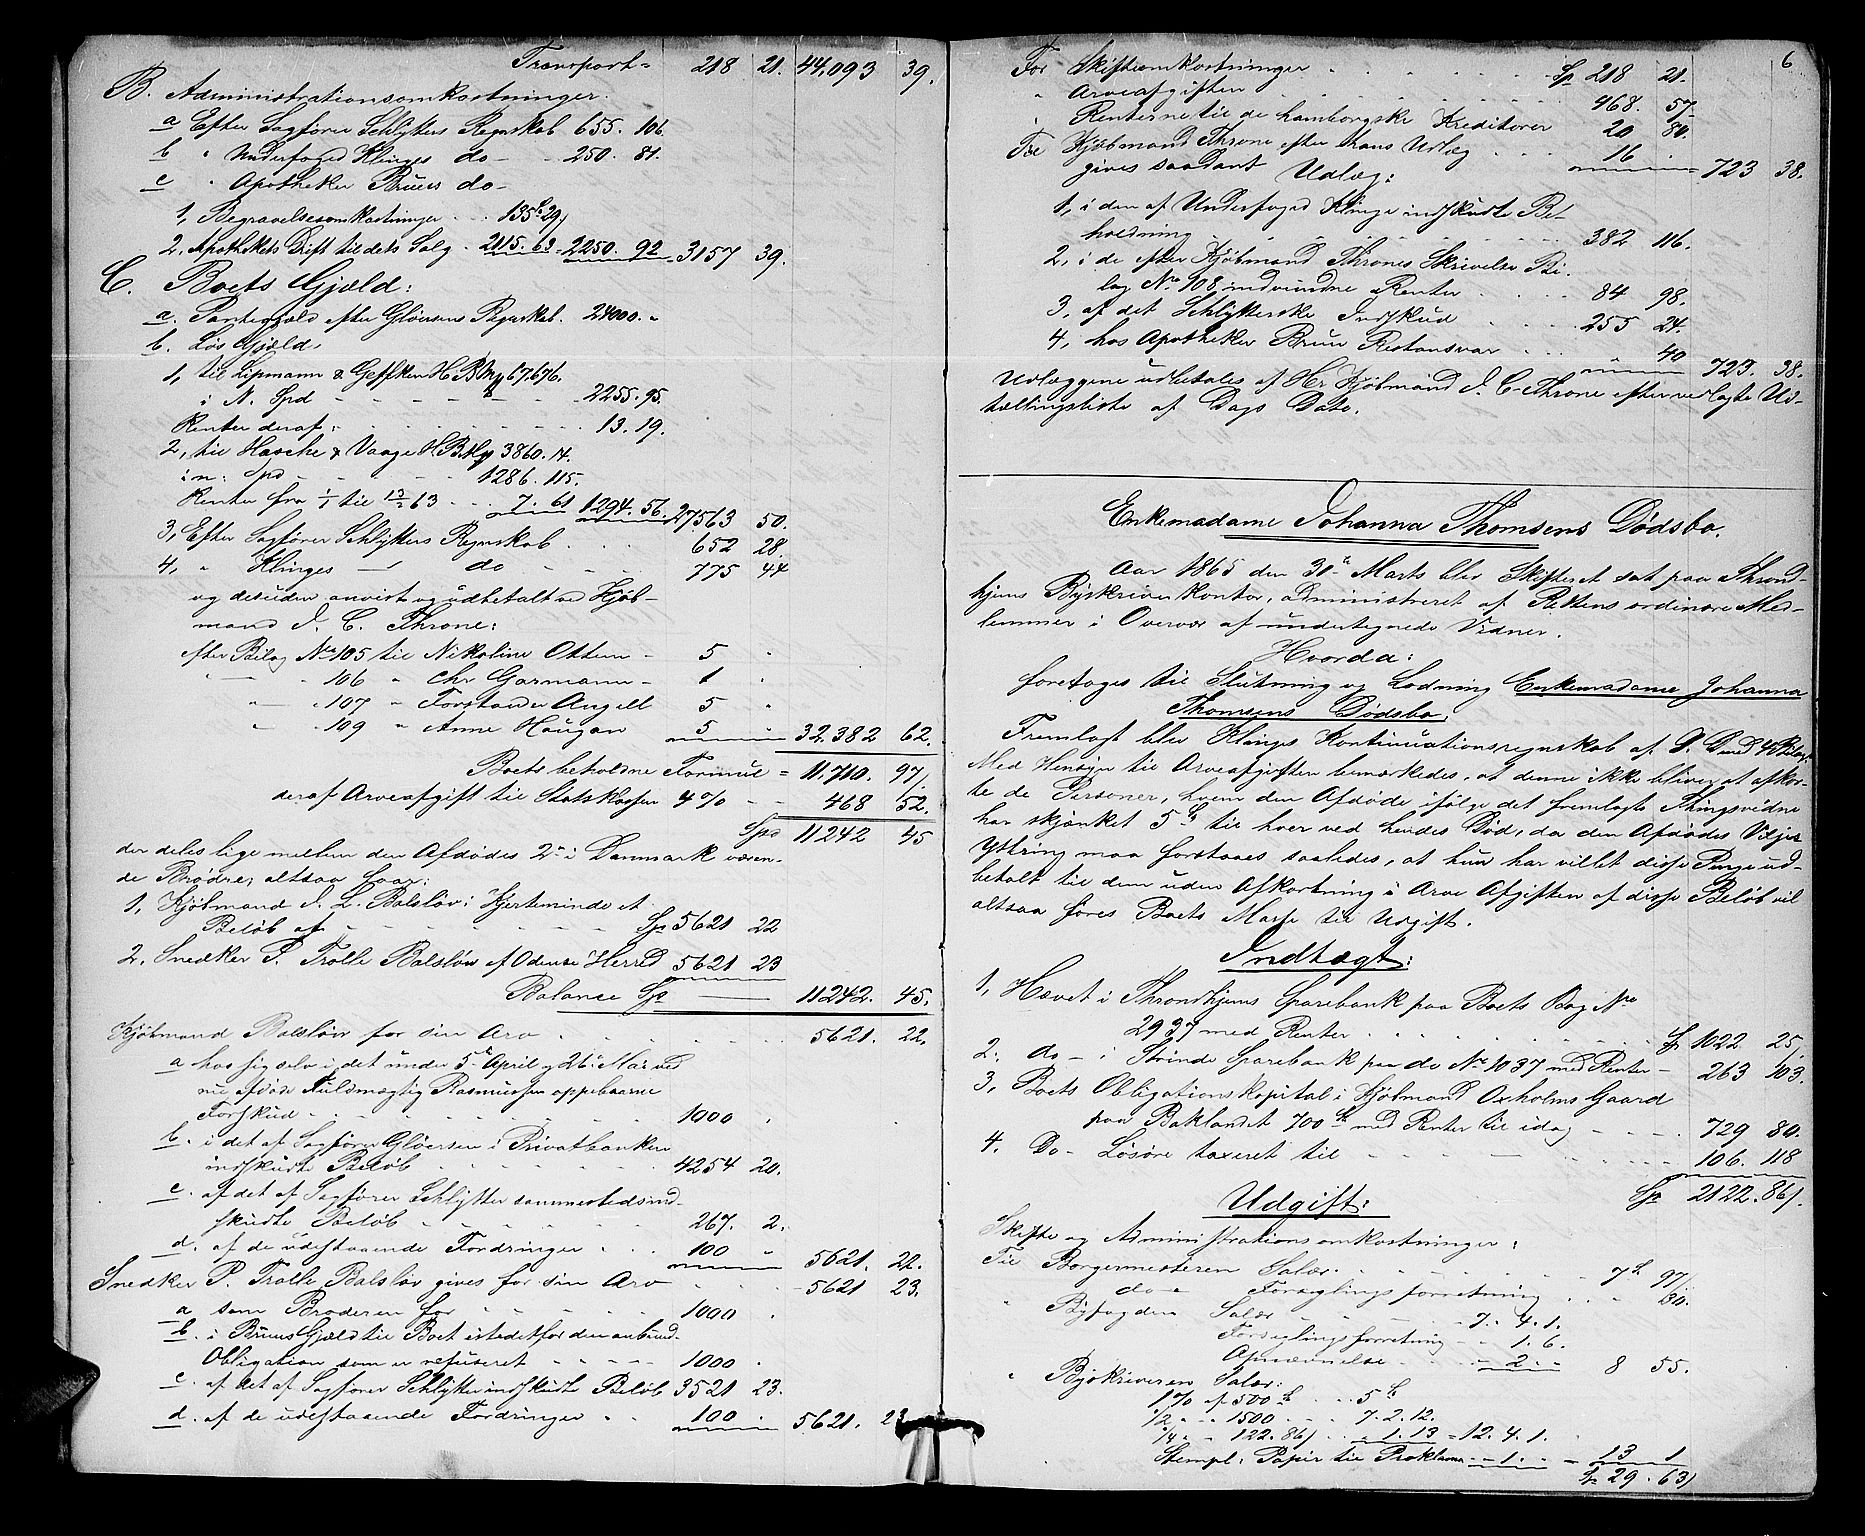 Transport - 218 21. 44,093 39.
B. Administrationsomkostninger:
a Efter Sagfører Schlytters Regnskab 655. 106.
b " Underfoged Klinges do - 250. 81.
c " Apotheker Bruns do -
1, Begravelsesomkostninger - - 135 29/
2, Apothekets Drift til dets Salg - 2115. 63 - 2250. 92 3157 39.
C. Boets Gjæld:
a. Pantegjæld efter Gløersens Regnskab. 24000. "
b. Løs Gjæld:
1, til Lipmann & Geffken H. B. Mk 67,676.
i N. Spd - - - - - - - 2255. 95.
Renter deraf: - - - - - - - 13. 19.
2, til Hasche & Vaage H B. Mk 3860. 14.
i n: Spd - - - - 1286. 115.
Renter fra 1/1 til 13/2 63 - - 7. 61 1294. 56. 27563 50.
3, Efter Sagfører Schlytters Regnskab - - - 652 28.
4, " Klinges — do - - - - 775 44
og desuden anvist og udbetalt ved Kjøb-
mand J. C. Throne:
efter Bilag No 105 til Nikoline Ottem - 5 "
" — " 106 " Chr Garmann - 1 "
" — " 107 " Forstander Angell 5 "
" " 109 " Anne Haugan 5 " 32.382 62.
Boets beholdne Formue = 11,710. 97/
deraf Arveafgift til Statskassen 4 % - - 468 52.
Spd 11242 45
der deles lige mellem den Afdødes 2de i Danmark væren-
de Brødre, altsaa faar:
1, Kjøbmand J. L. Balsløv i Kjerteminde et
Beløb af - - - - - - Sp 5621 22
2, Snedker P. Trolle Balsløv af Odense Herred 5621 23
Balance Sp — 11242. 45.
Kjøbmand Balsløv for sin Arv - - - - - - 5621. 22.
a hos sig selv i det under 5te April og 26de Mai ved
nu afdøde Fuldmægtig Rasmussen oppebaarne
Forskud - - - - - - - 1000 "
b. i det af Sagfører Gløersen i Privatbanken
indskudte Beløb - - - - - 4254 20.
c. af det af Sagfører Schlytter sammesteds ind-
skudte Beløb - - - - - 267. 2.
d. af de udestaaende Fordringer - - - 100 " 5621. 22.
Snedker P. Trolle Balsløv gives for sin Arv - - - 5621 23.
a som Broderen for - - - - 1000 "
b. i Bruns Gjæld til Boet istedetfor den anbud.
Obligation som er refuseret - - - - 1000 "
c. af det af Sagfører Schlytter indskudte Beløb 3521 23.
d. af de udestaaende Fordringer - - 100 " 5621. 23
6
For Skifteomkostninger - - - - - - Sp 218 21.
" Arveafgiften - - - - - - - 468. 57.
" Renterne til de hamborgske Kreditorer 20 80.
Til Kjøbmand Throne efter hans Udlæg - - - 16 "
gives saadant Udlæg: 723 38.
1, i den af Underfoged Klinge indskudte Be-
holdning - - - - - - - 382 116.
2, i de efter Kjøbmand Thrones Skrivelse Bi-
lag No 108 indvundne Renter - - - - 84 98.
3, af det Schlytterske Indskud - - - 255 24.
4, hos Apotheker Brun Restansvar - - - " 40 723. 38.
Udlæggene udbetales af Hr Kjøbmand J. C. Throne efter vedlagte Ud-
tællingsliste af Dags Dato.
Enkemadame Johanna Thomsens Dødsbo.
Aar 1865 den 31te Marts blev Skifteret sat paa Thrond-
hjems Byskriverkontor, administreret af Rettens ordinære Med-
lemmer i Overvær af undertegnede Vidner.
Hvorda:
foretoges til Slutning og Lodning Enkemadame Johanna
Thomsens Dødsbo.
Fremlagt blev Klinges Kontinuationsregnskab af D. D. med 45 Bilag.
Med Hensyn til Arveafgiften bemærkedes, at denne ikke bliver at afkor-
te de Personer, hvem den Afdøde ifølge det fremlagte Thingsvidne
har skjænket 5 Spd til hver ved hendes Død, da den Afdødes Viljes
Yttring maa forstaaes saaledes, at hun har villet disse Penge ud-
betalt til dem uden Afkortning i Arve Afgiften af disse Beløb vil
altsaa føres Boets Masse til Udgift.
Indtægt:
1, Hævet i Throndhjems Sparebank paa Boets Bog No
2937 med Renter - - - - - - - Sp 1022 25,
2. do - i Strinde Sparebank paa do No 1037 med Renter - 263 103.
3, Boets Obligationskapital i Kjøbmand Oxholms Gaard
paa Baklandet 700 Spd med Renter til idag - - - 729 80.
4. Do - Løsøre taxeret til - - - - - - 106. 118
Sp 2122. 86/
Udgift:
Skifte og Administrationsomkostninger:
Til Borgermesteren Salær - - - - - - - 7 97/
do - Forseglingsforretning - - - 80.
" Byfogden Salær - - - - 7. 4. 1.
Forseglingsforretning - - 1. 6.
- - - 2. - - 8 55.
" Byskriveren Salær:
1 % af 500 - - 5
1/2 " - 1500 - - 7. 2. 12.
1/4 " - 122. 86/ - - 1. 13 = 12. 4. 1.
Stempl. Papir til Proklama - - 1 - - - 13 1
Sp 29. 63/